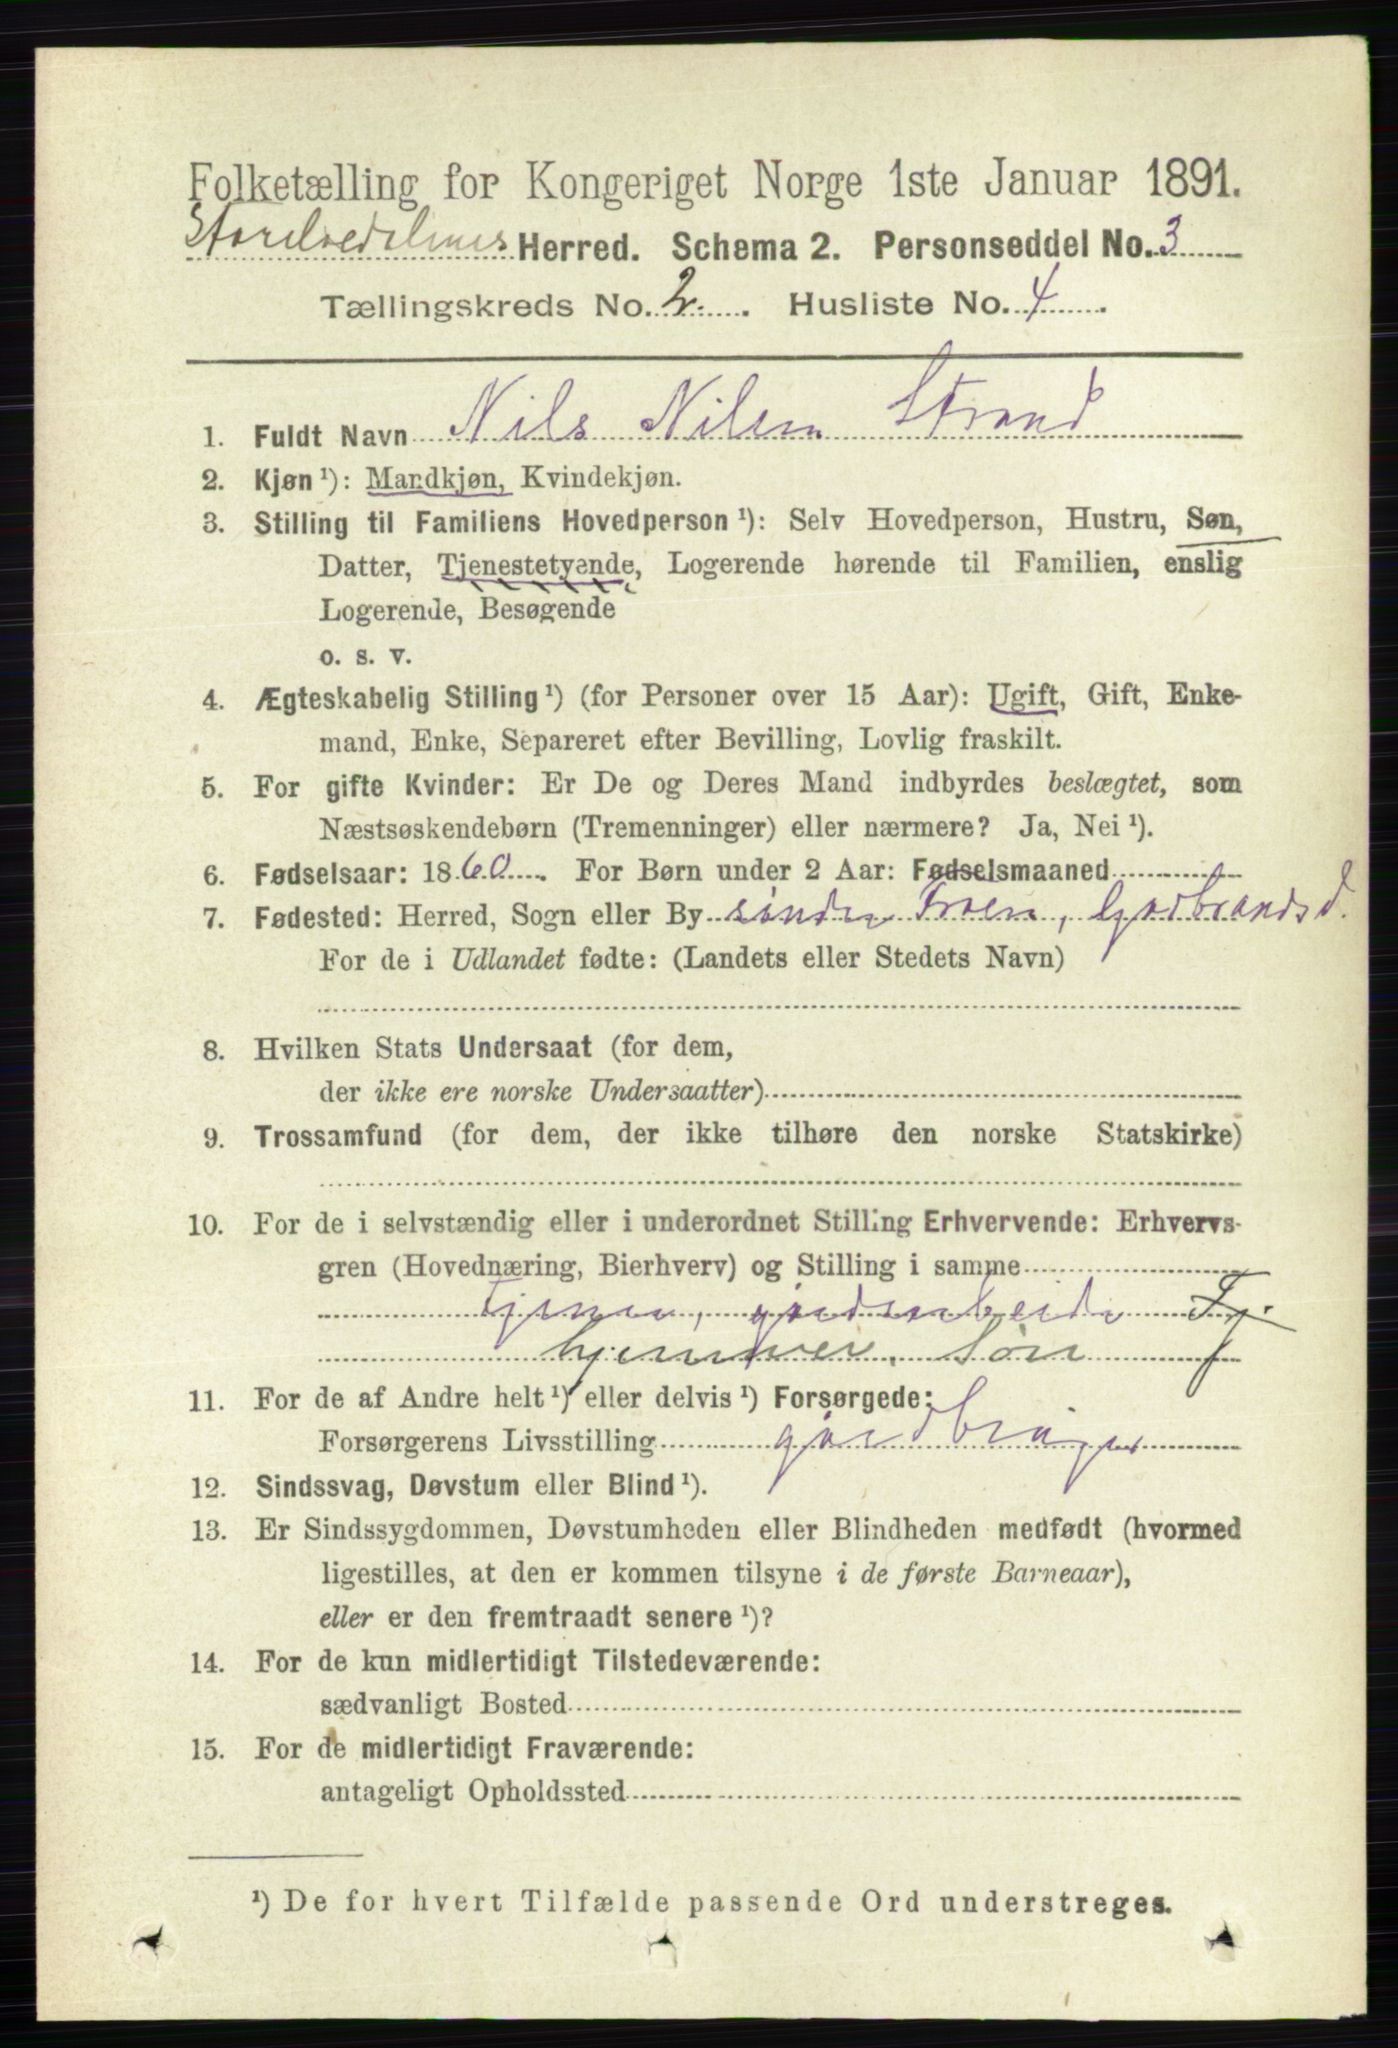 Folketælling for Kongeriget Norge 1ste Januar 1891.
Storelvedalens Herred. Schema 2. Personseddel No. 3
Tællingskreds No. 2. Husliste No. 4.
1. Fuldt Navn Nils Nilsen Strand
2. Kjøn ¹): Mandkjøn, Kvindekjøn.
3. Stilling til Familiens Hovedperson ¹): Selv Hovedperson, Hustru, Søn,
Datter, Tjenestetyende, Logerende hørende til Familien, enslig
Logerende, Besøgende
o. s. v.
4. Ægteskabelig Stilling ¹) (for Personer over 15 Aar): Ugift, Gift, Enke-
mand, Enke, Separeret efter Bevilling, Lovlig fraskilt.
5. For gifte Kvinder: Er De og Deres Mand indbyrdes beslægtet, som
Næstsøskendebørn (Tremenninger) eller nærmere? Ja, Nei ¹).
6. Fødselsaar: 1860. For Børn under 2 Aar: Fødselsmaaned
7. Fødested: Herred, Sogn eller By søndre Froen, Gudbrandsd.
For de i Udlandet fødte: (Landets eller Stedets Navn)
8. Hvilken Stats Undersaat (for dem,
der ikke ere norske Undersaatter)
9. Trossamfund (for dem, der ikke tilhøre den norske Statskirke)
10. For de i selvstændig eller i underordnet Stilling Erhvervende: Erhvervs-
gren (Hovednæring, Bierhverv) og Stilling i samme
tjener, gårdsarbeide Tj.
hjemmev. Søn
11. For de af Andre helt ¹) eller delvis ¹) Forsørgede:
Forsørgerens Livsstilling gårdbruger
12. Sindssvag, Døvstum eller Blind ¹).
13. Er Sindssygdommen, Døvstumheden eller Blindheden medfødt (hvormed
ligestilles, at den er kommen tilsyne i de første Barneaar),
eller er den fremtraadt senere ¹)?
14. For de kun midlertidigt Tilstedeværende:
sædvanligt Bosted
15. For de midlertidigt Fraværende:
antageligt Opholdssted
¹) De for hvert Tilfælde passende Ord understreges.